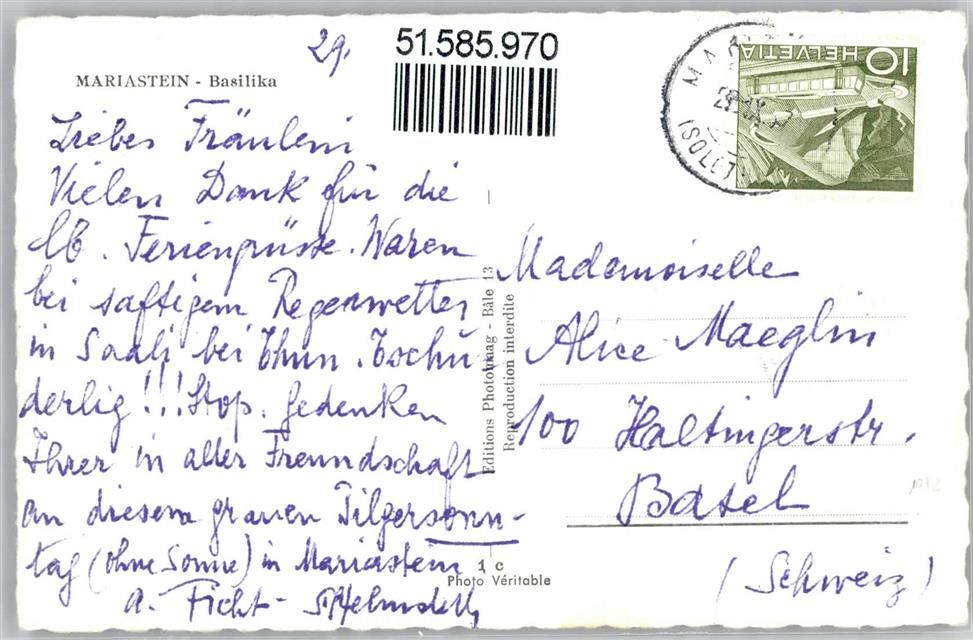 29.
51.585.970
MARIASTEIN - Basilika
Liebes Fräulein
Vielen Dank für die
lb. Feriengrüsse. Waren
bei saftigem Regenwetter
in Saali bei Thun. Tschu
derlig!!! Stop. Gedenken
Ihrer in aller Freundschaft
an diesem grauen Pilgersonn-
tag (ohne Sonne) in Mariastein
A. Ficht-
1 c
Photo Véritable
Editions Photobromag - Bâle 13
Reproduction interdite
10 HELVETIA
Mademoiselle
Alice Maeglin
100 Haltingerstr.
Basel
(Schweiz)